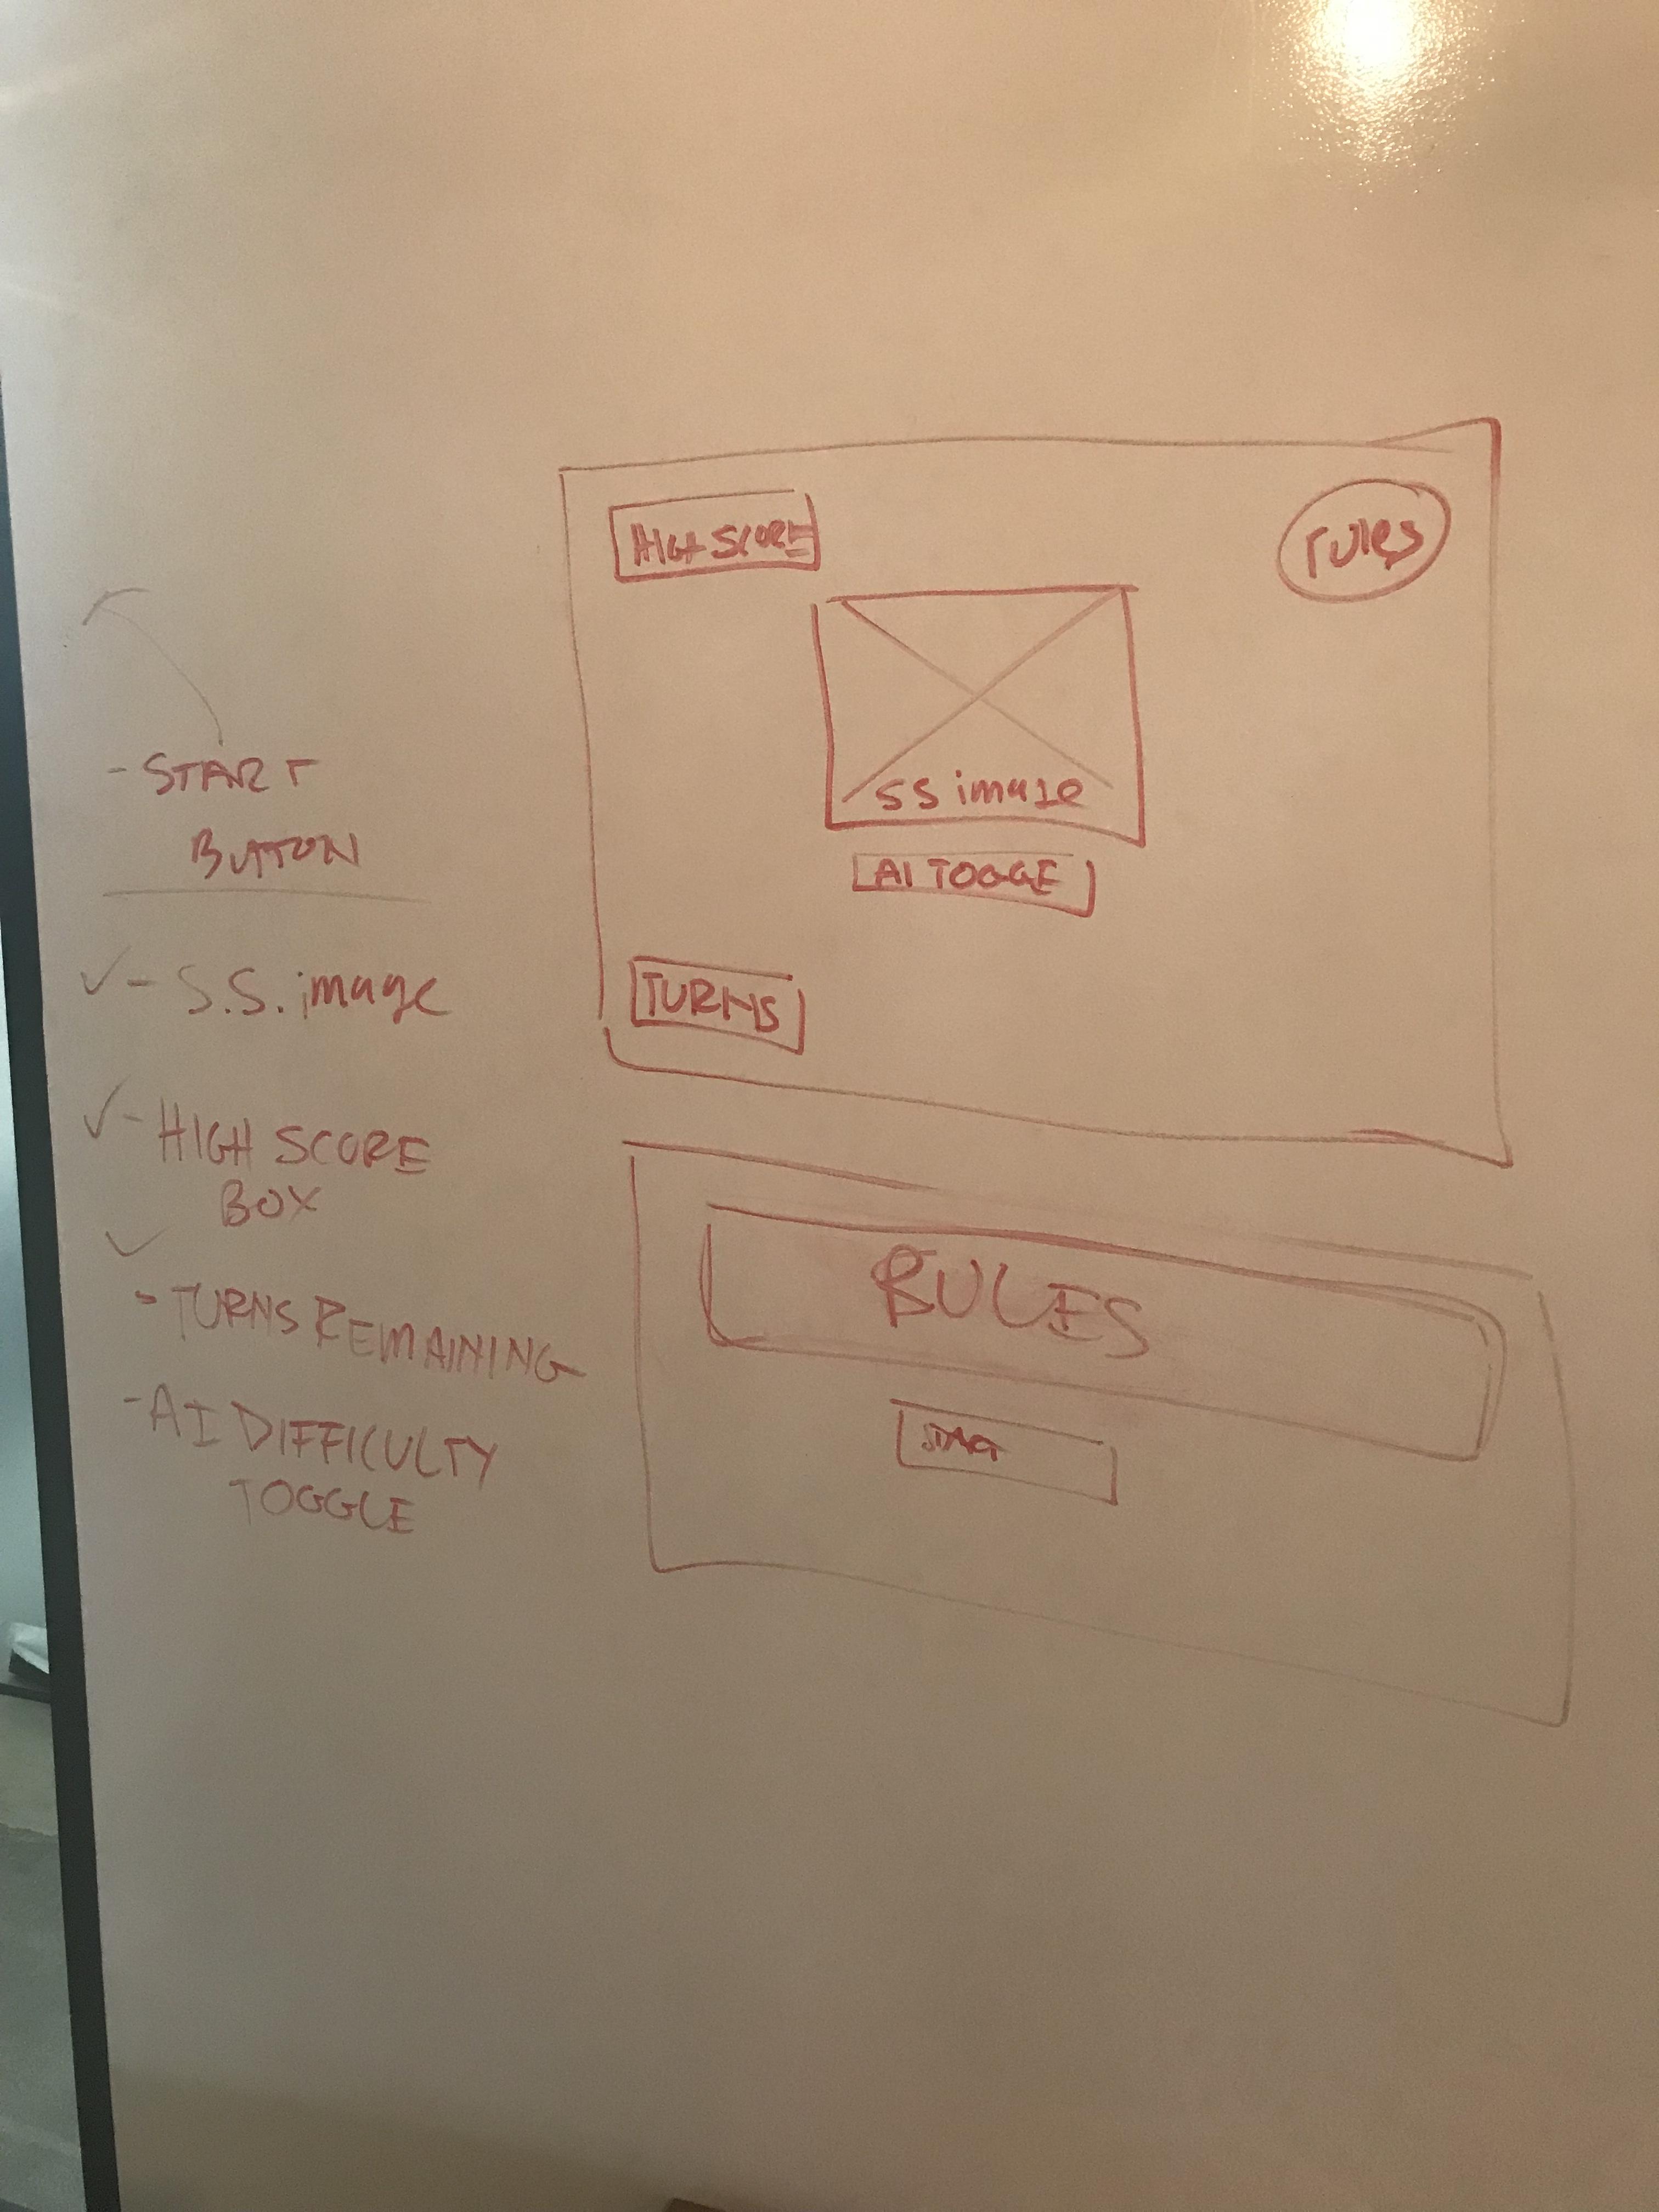 - START
BUTTON
✓ - S.S. image
✓ - HIGH SCORE
BOX
✓
- TURNS REMAINING
- AI DIFFICULTY
TOGGLE
HIGH SCORE
rules
SS image
AI TOGGE
TURNS
RULES
START